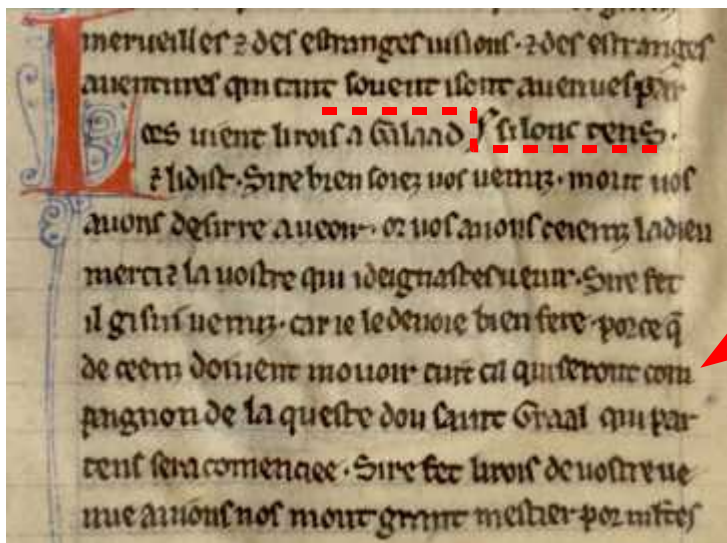 merueilles ⁊ des estranges uisions· ⁊ des estranges
auentures qui tant souent isont auenues par
si lonc tens·
Lors uient li rois a Galaad
⁊ li dist· Sire bien soiez uos uenuz· mout uos
auons desirre a ueoir· or uos auons ceienz la dieu
merci ⁊ la uostre qui i deignastes uenir· Sire fet
il gi sui uenuz· car ie le deuoie bien fere· por ce q̃
de ceenz doiuent mouoir tuit cil qui seront com
paignon de la queste dou saint Graal qui par
tens sera comenciee· Sire fet li rois de uostre ue
nue auions nos mout grant mestier por